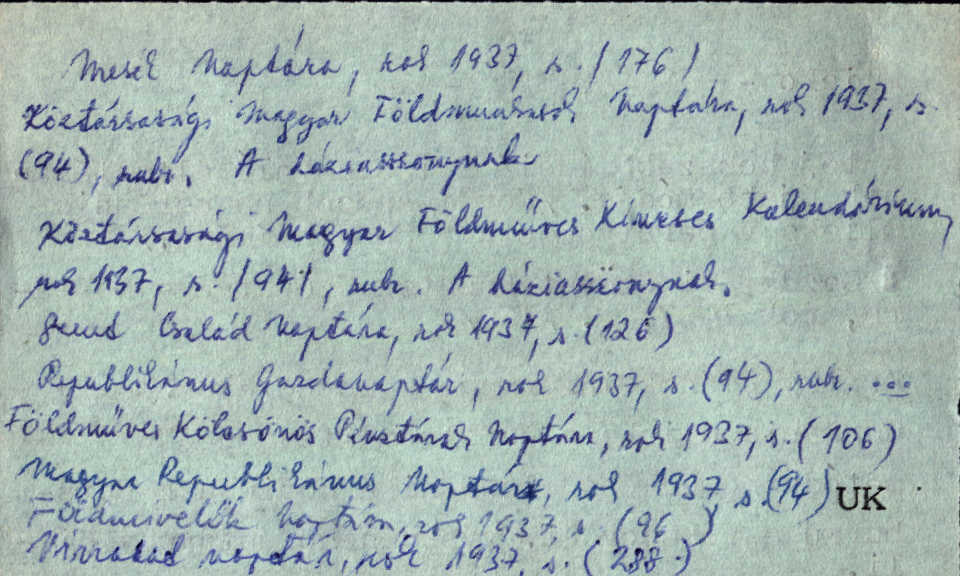 Mesék Naptára, rok 1937, s. (176)
Köztársasági Magyar Földmunkások Naptára, rok 1937, s.
(94), rubr. A háziasszonynak
Köztársasági Magyar Földműves Kincses Kalendárium,
rok 1937, s. (94), rubr. A háziasszonynak.
Szent Család Naptára, rok 1937, s. (126)
Republikánus Gazdanaptár, rok 1937, s. (94), rubr. ...
Földműves Kölcsönös Pénztárak Naptára, rok 1937, s. (106)
Magyar Republikánus Naptár, rok 1937, s. (94) UK
Földmivelők Naptára, rok 1937, s. (96)
Virradat naptár, rok 1937, s. (288)